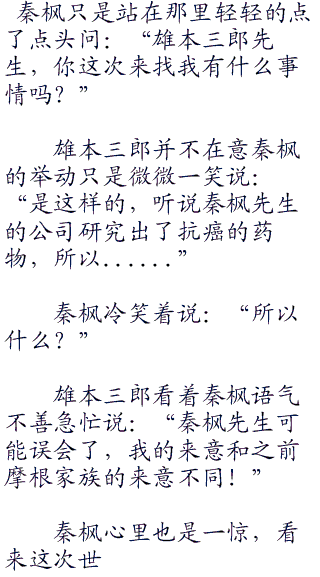 秦枫只是站在那里轻轻的点
了点头问：“雄本三郎先
生，你这次来找我有什么事
情吗？”
雄本三郎并不在意秦枫
的举动只是微微一笑说：
“是这样的，听说秦枫先生
的公司研究出了抗癌的药
物，所以......”
秦枫冷笑着说：“所以
什么？”
雄本三郎看着秦枫语气
不善急忙说：“秦枫先生可
能误会了，我的来意和之前
摩根家族的来意不同！”
秦枫心里也是一惊，看
来这次世